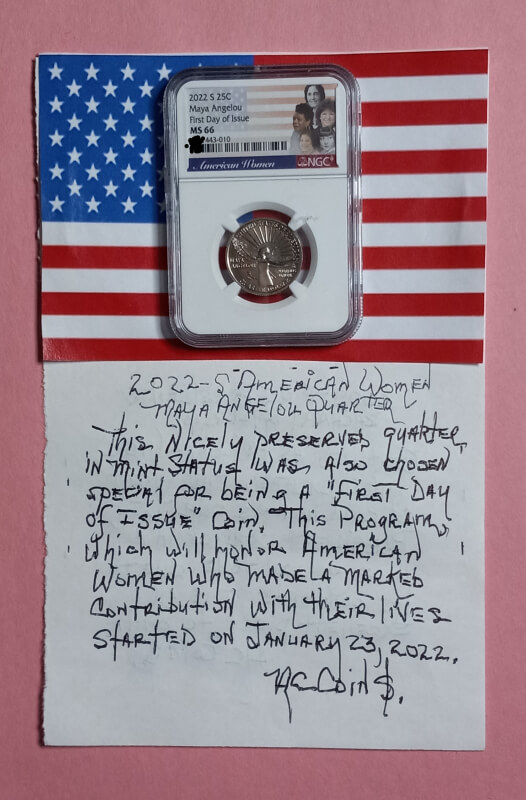 2022 S 25C
Maya Angelou
First Day of Issue
MS 66
443-010
American Women
NGC
MAYA ANGELOU
2022-S AMERICAN WOMEN
MAYA ANGELOU QUARTER
This NICELY PRESERVED QUARTER,
IN MINT STATUS WAS ALSO CHOSEN
SPECIAL FOR being A "FIRST DAY
OF ISSUE" COIN. This PROGRAM,
Which will HONOR AMERICAN
WOMEN WHO MADE A MARKED
CONTRIBUTION WITH THEIR LIVES
STARTED ON JANUARY 23, 2022.
COIN$.